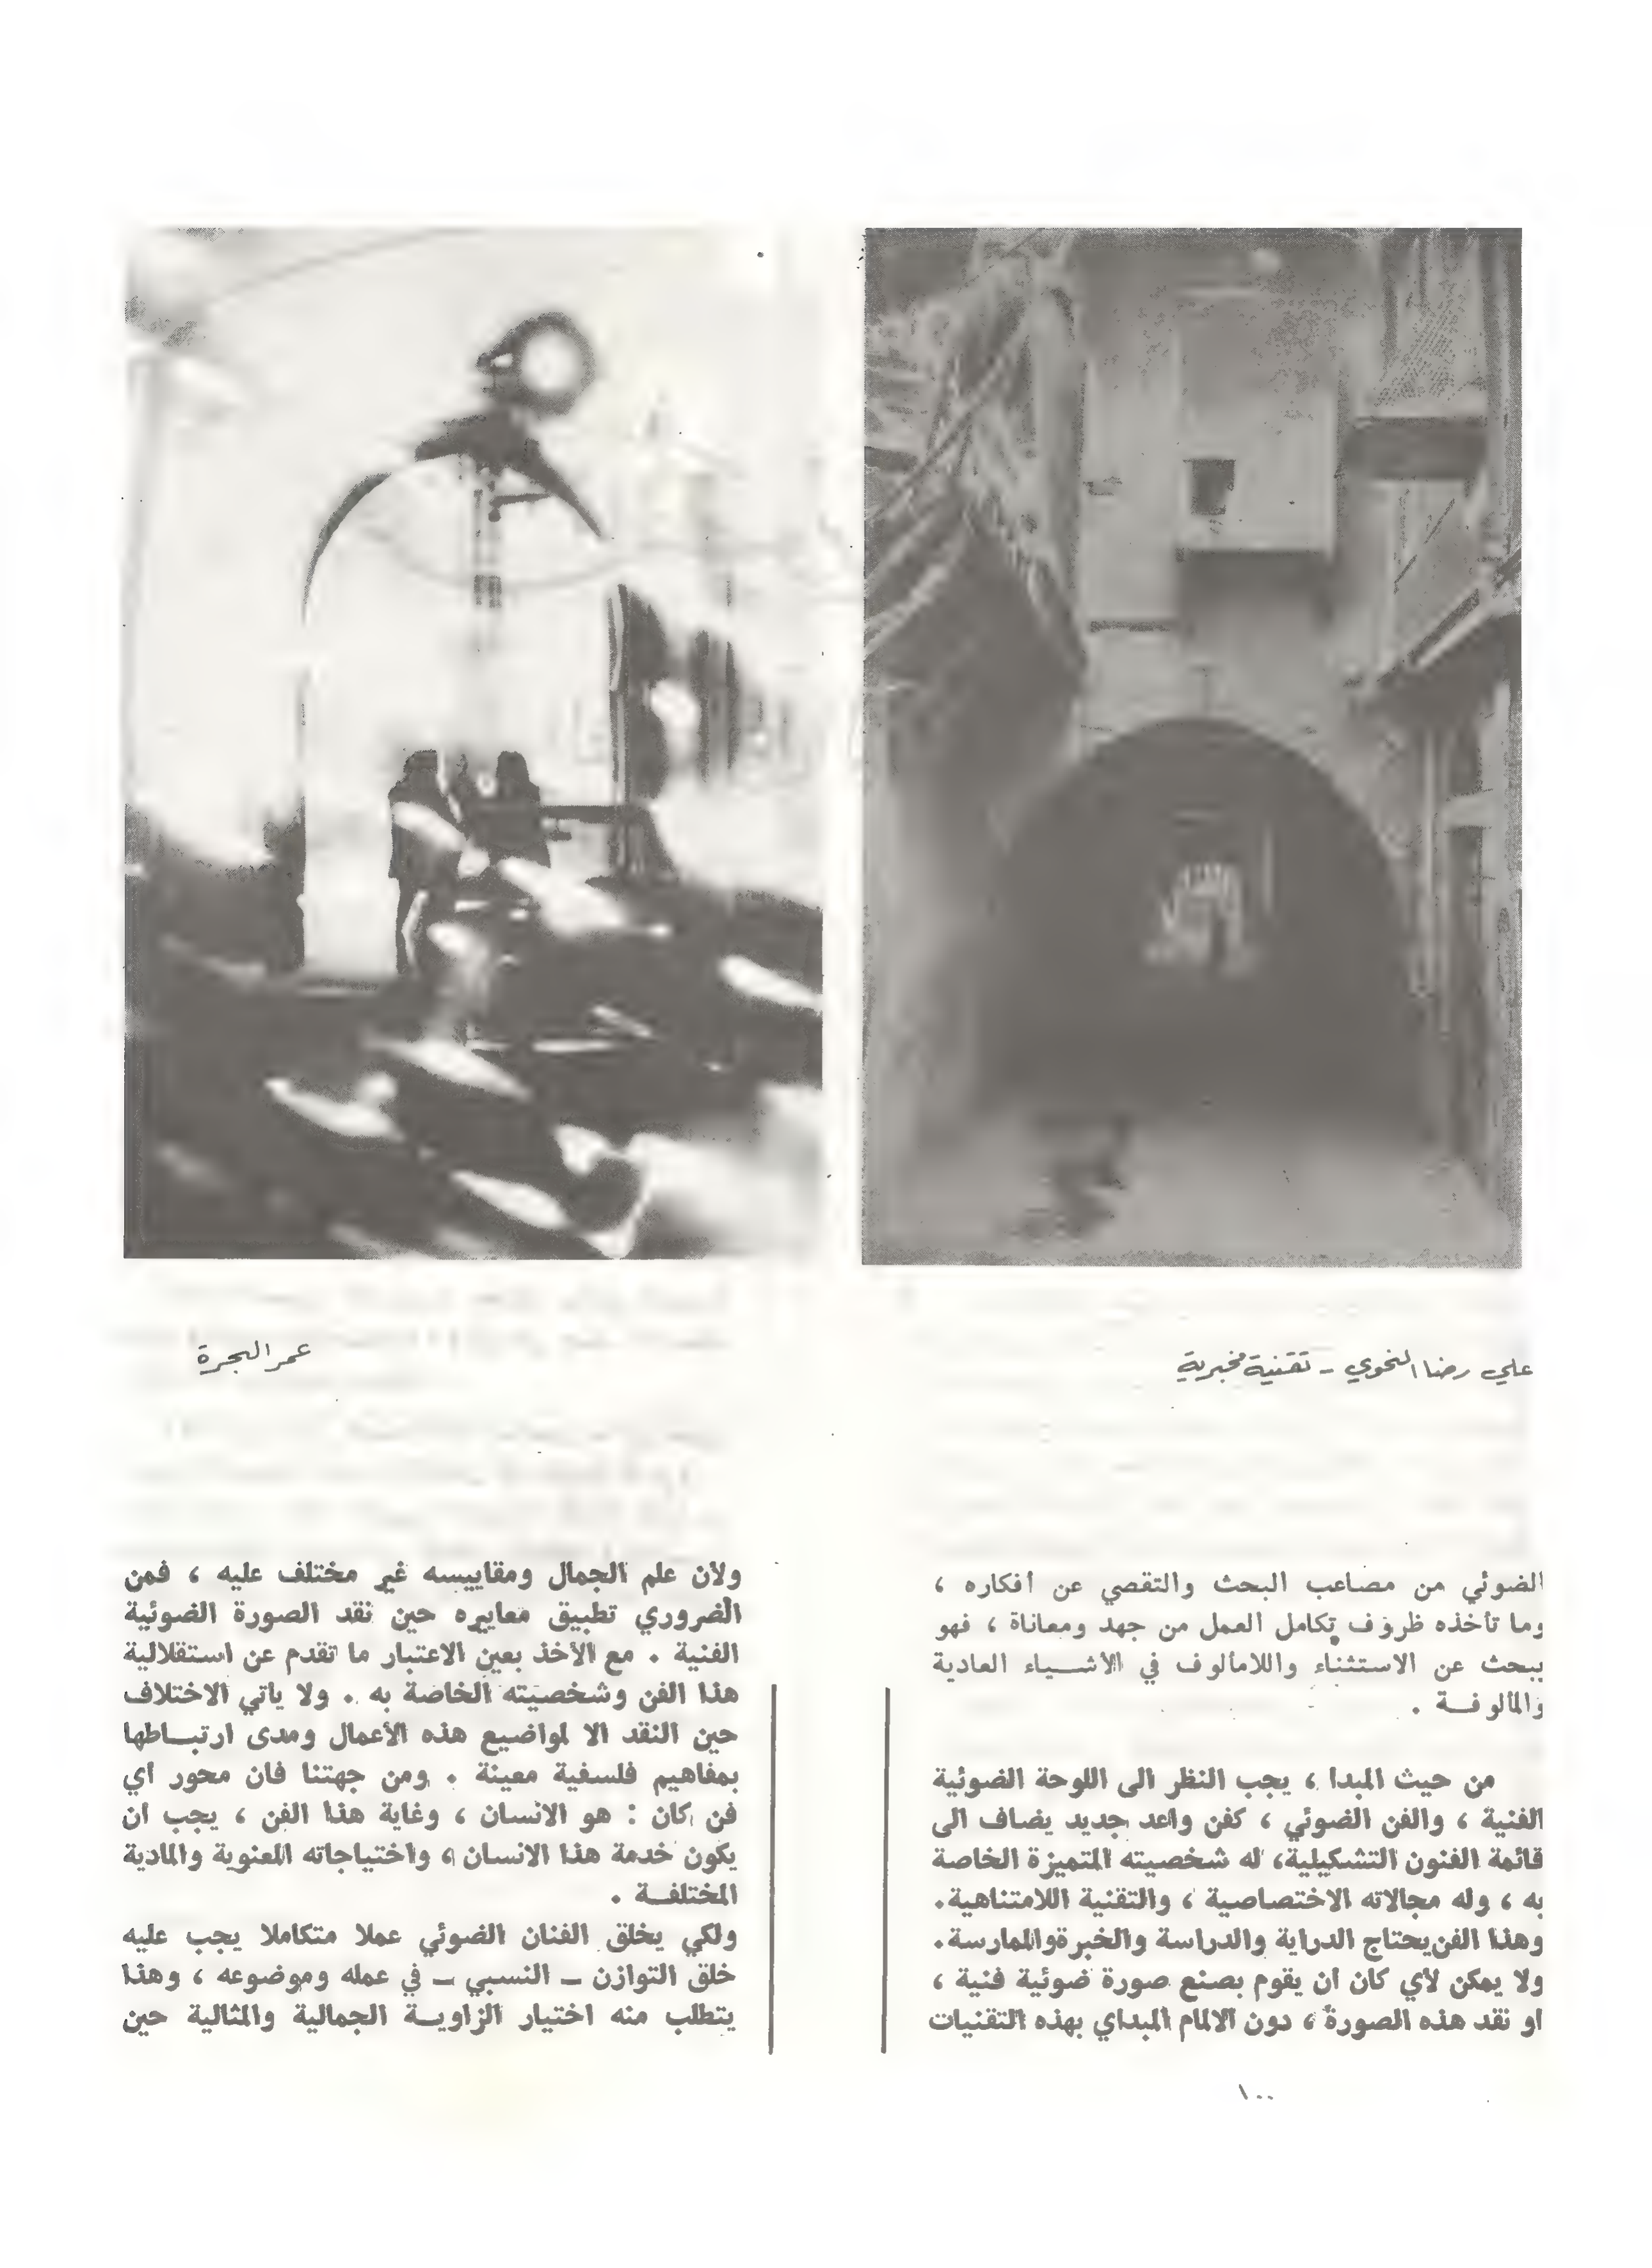 علي رضا النحوي – تقنية مخبرية
عمر البحرة
الضوئي من مصاعب البحث والتقصي عن أفكاره ،
وما تأخذه ظروف تكامل العمل من جهد ومعاناة ، فهو
يبحث عن الاستثناء واللامألوف في الأشــياء العادية
والمألوفــة .
من حيث المبدا ، يجب النظر الى اللوحة الضوئية
الفنية ، والفن الضوئي ، كفن واعد جديد يضاف الى
قائمة الفنون التشكيلية، له شخصيته المتميزة الخاصة
به ، وله مجالاته الاختصاصية ، والتقنية اللامتناهية.
وهذا الفن يحتاج الدراية والدراسة والخبرة والممارسة.
ولا يمكن لأي كان ان يقوم بصنع صورة ضوئية فنية ،
او نقد هذه الصورة ، دون الالمام المبداي بهذه التقنيات
ولان علم الجمال ومقاييسه غير مختلف عليه ، فمن
الضروري تطبيق معاييره حين نقد الصورة الضوئية
الفنية . مع الأخذ بعين الاعتبار ما تقدم عن استقلالية
هذا الفن وشخصيته الخاصة به . ولا ياتي الاختلاف
حين النقد الا لمواضيع هذه الأعمال ومدى ارتبــاطها
بمفاهيم فلسفية معينة . ومن جهتنا فان محور اي
فن كان : هو الانسان ، وغاية هذا الفن ، يجب ان
يكون خدمة هذا الانسان ، واختياجاته المعنوية والمادية
المختلفــة .
ولكي يخلق الفنان الضوئي عملا متكاملا يجب عليه
خلق التوازن – النسبي – في عمله وموضوعه ، وهذا
يتطلب منه اختيار الزاويــة الجمالية والمثالية حين
١٠٠